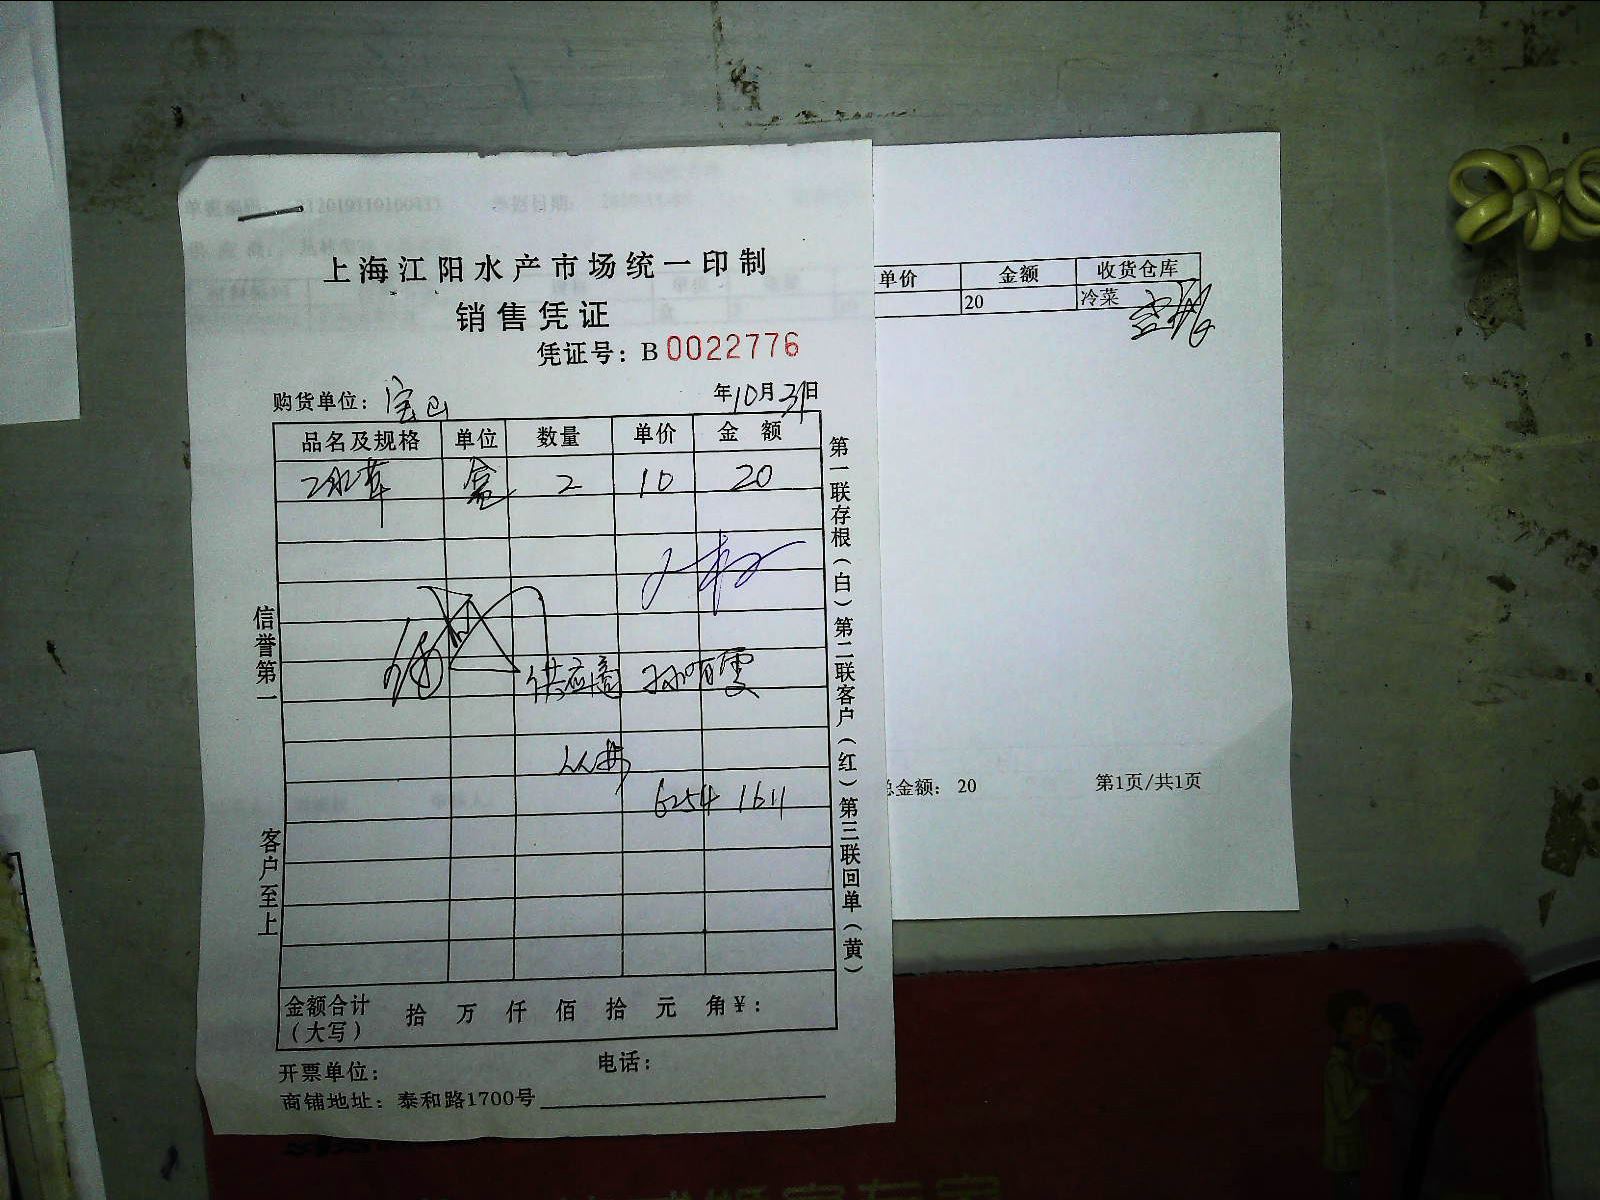 上海江阳水产市场统一印制
销售凭证
凭证号：B 0022776
购货单位：宝山
年10月31日
品名及规格 单位 数量 单价 金额
盒 2 10 20
供应商 孙有雯
6254 1611
金额合计（大写） 拾 万 仟 佰 拾 元 角 ¥：
开票单位： 电话：
商铺地址：泰和路1700号
信誉第一
客户至上
第一联存根（白）第二联客户（红）第三联回单（黄）
单价 金额 收货仓库
20 冷菜
总金额： 20 第1页/共1页